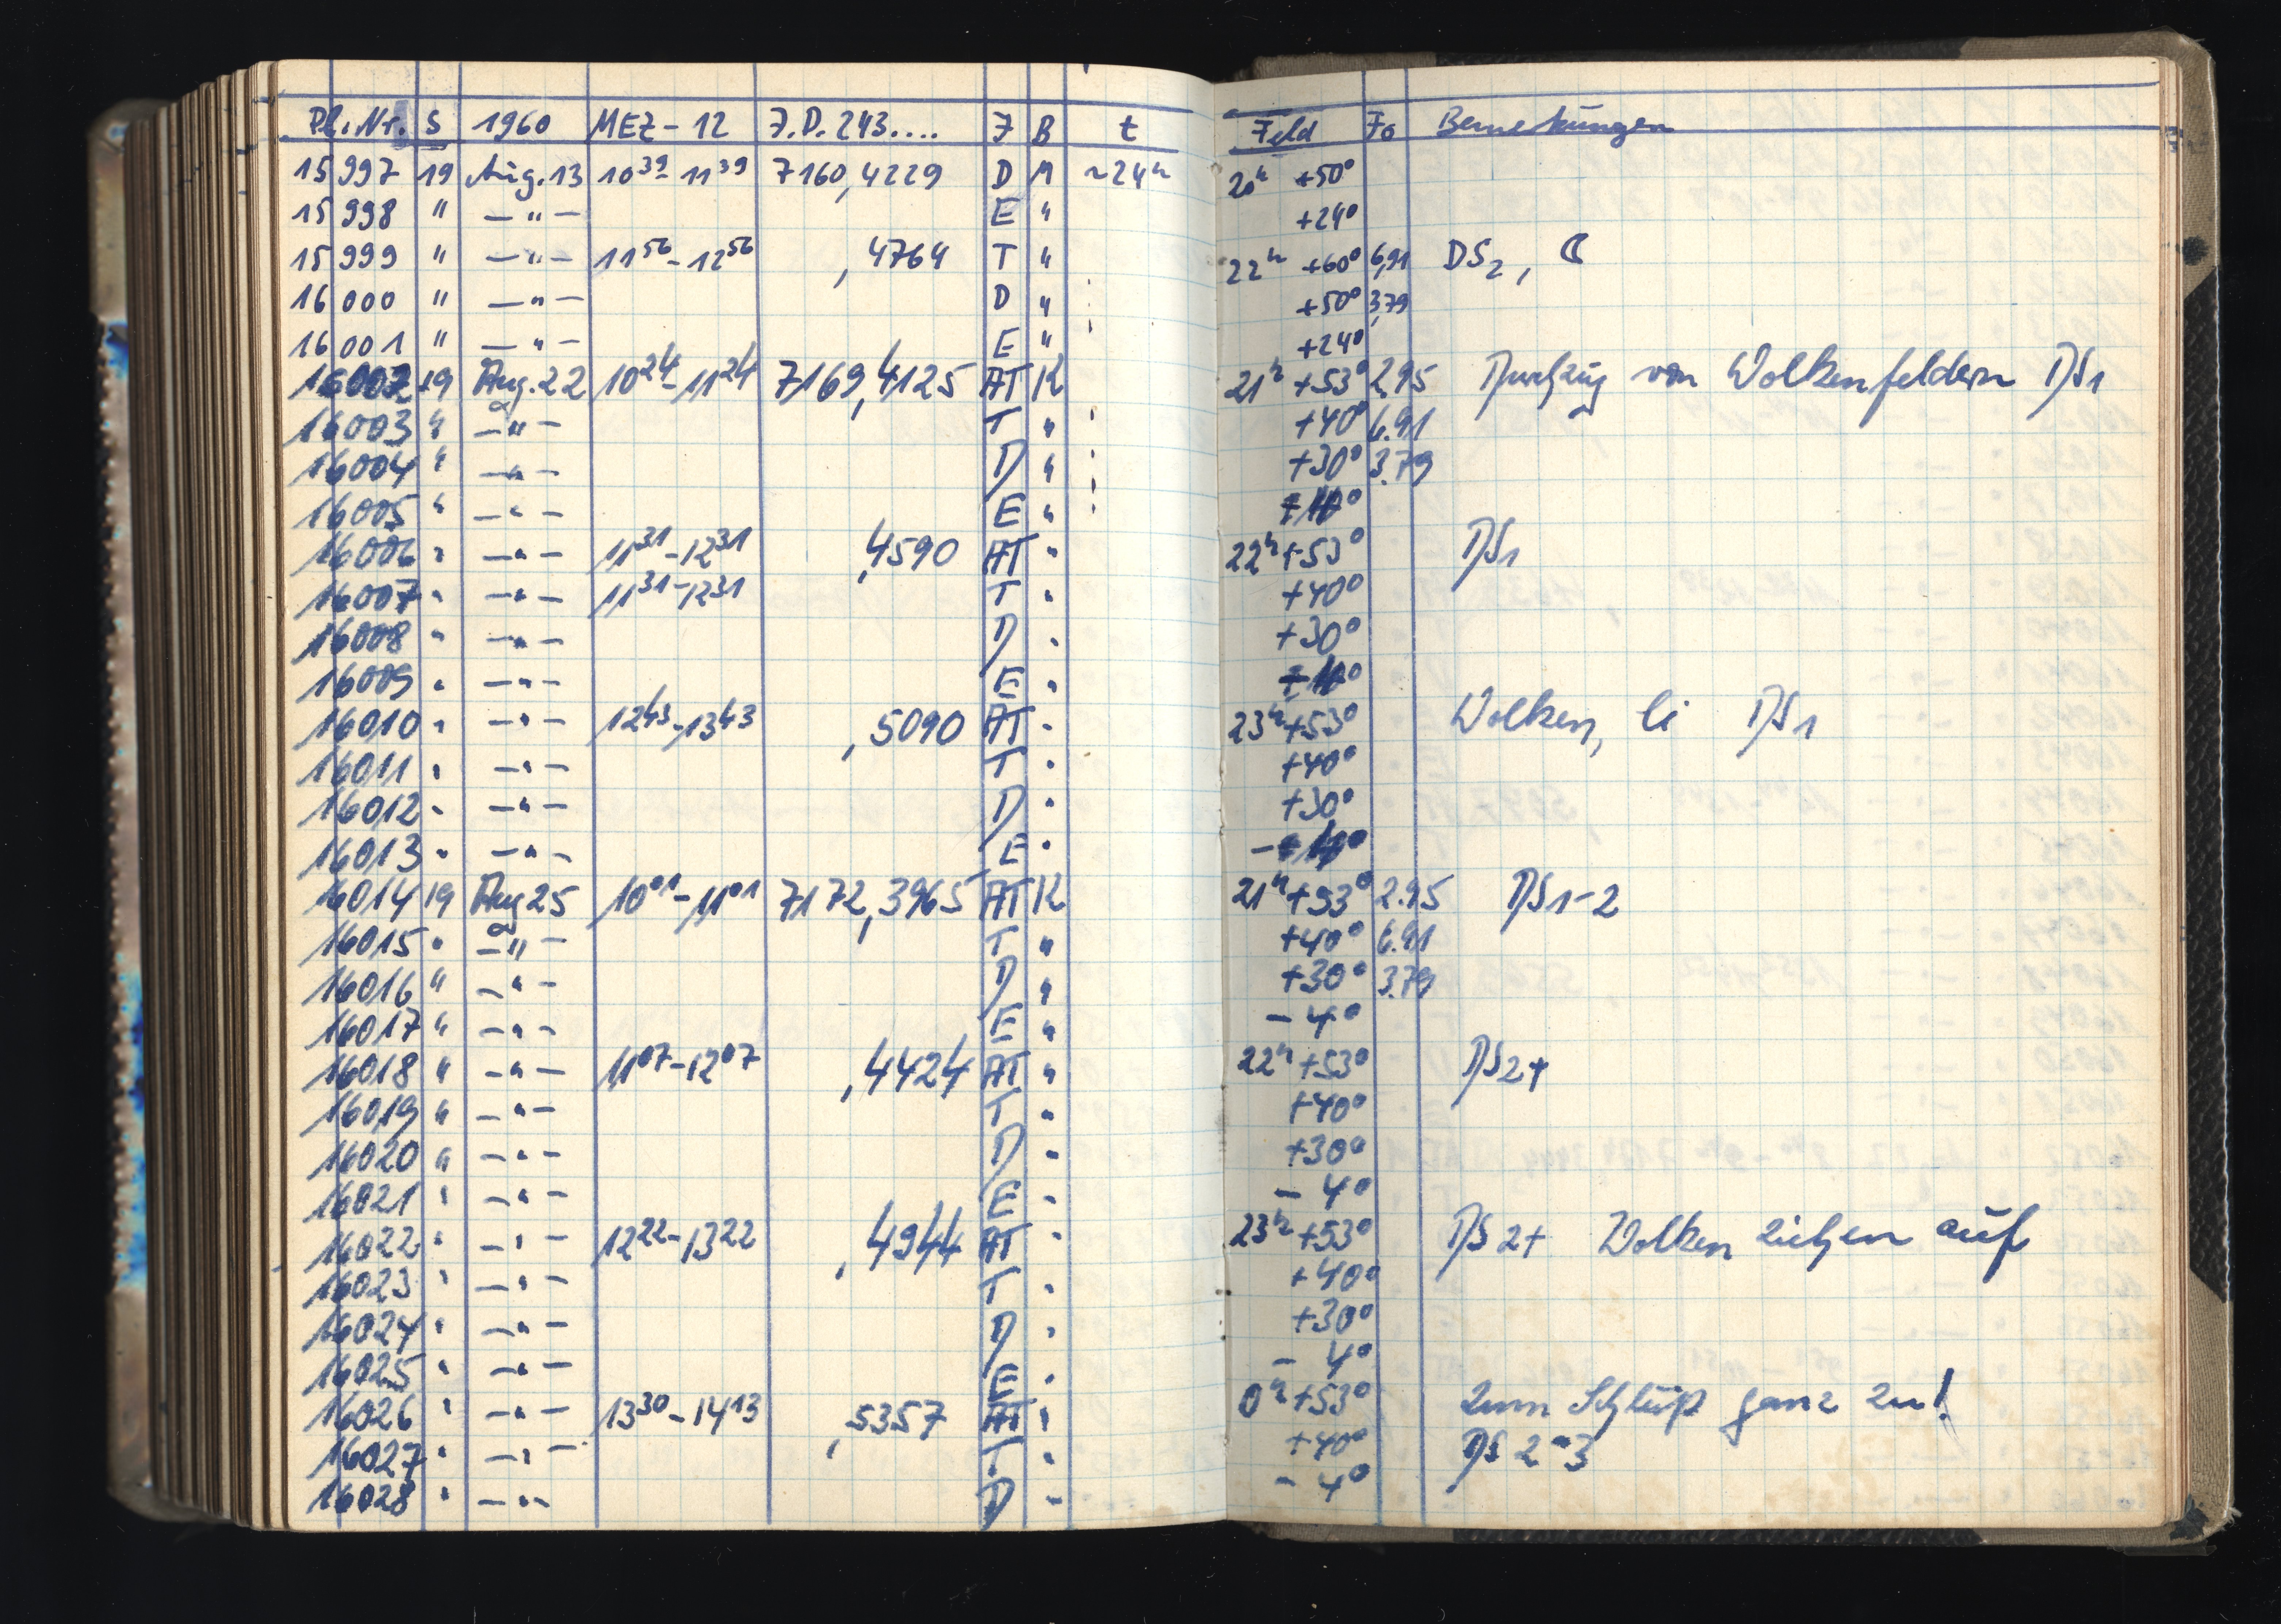 Pl.Nr. S 1960 MEZ-12 J.D. 243.... J B t Feld Fo Bemerkungen
15997 19 Aug. 13 10³⁹-11³⁹ 7160,4229 D M ~24ʰ 20ʰ +50°
15998 " -"- E " +24°
15999 " -"- 11⁵⁶-12⁵⁶ ,4764 T " 22ʰ +60° 6,91 DS₂, ☾
16000 " -"- D " +50° 3,79
16001 " -"- E " +24°
16002 19 Aug. 22 10²⁴-11²⁴ 7169,4125 AT K 21ʰ +53° 2.95 Durchzug von Wolkenfeldern DS1
16003 " -"- T " +40° 6.91
16004 " -"- D " +30° 3.79
16005 " -"- E "
16006 " -"- 11³¹-12³¹ ,4590 AT " 22ʰ +53° DS1
16007 " -"- 11³¹-12³¹ T " +40°
16008 " -"- D " +30°
16009 " -"- E "
16010 " -"- 12⁴³-13⁴³ ,5090 AT " 23ʰ +53° Wolken, li DS1
16011 " -"- T " +40°
16012 " -"- D " +30°
16013 " -"- E "
16014 19 Aug 25 10⁰¹-11⁰¹ 7172,3965 AT K 21ʰ +53° 2.95 DS1-2
16015 " -"- T " +40° 6.91
16016 " -"- D " +30° 3.79
16017 " -"- E " - 4°
16018 " -"- 11⁰⁷-12⁰⁷ ,4424 AT " 22ʰ +53° DS2+
16019 " -"- T " +40°
16020 " -"- D " +30°
16021 " -"- E " - 4°
16022 " -"- 12²²-13²² ,4944 AT " 23ʰ +53° DS 2+ Wolken ziehen auf
16023 " -"- T " +40°
16024 " -"- D " +30°
16025 " -"- E " - 4°
16026 " -"- 13³⁰-14¹³ ,5357 AT " 0ʰ +53° zum Schluß ganz zu!
16027 " -"- T " +40° DS 2-3
16028 " -"- D " - 4°